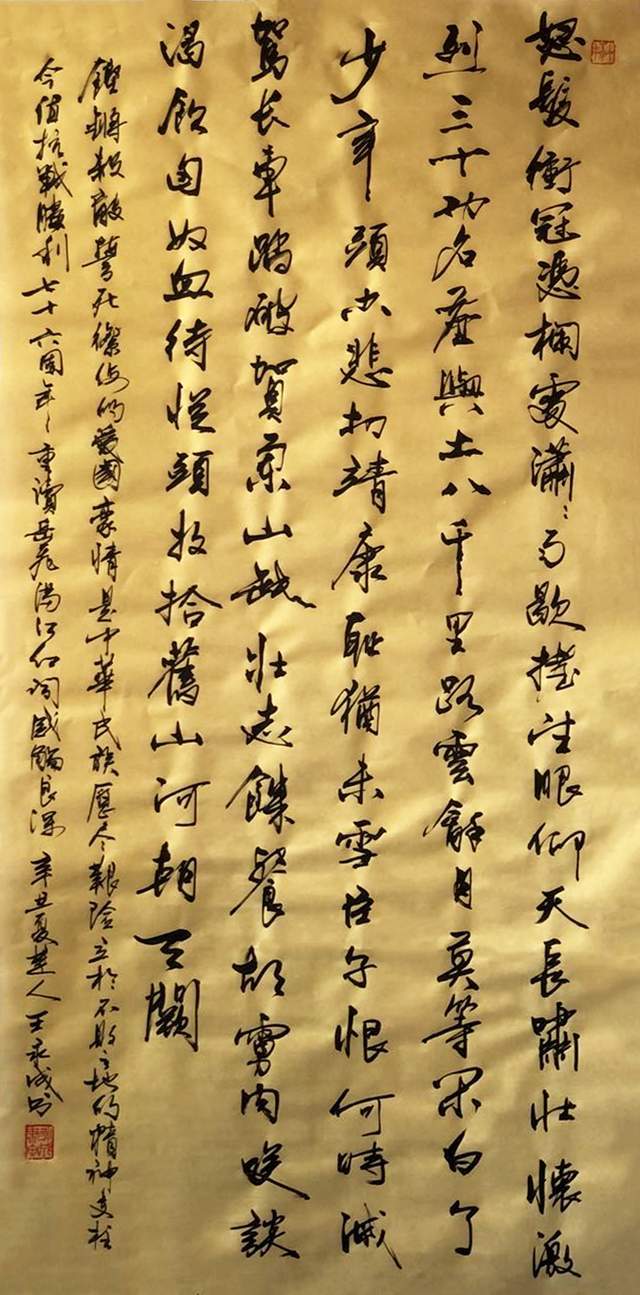 怒髮衝冠憑欄處瀟瀟雨歇擡望眼仰天長嘯壯懷激
烈三十功名塵與土八千里路雲龢月莫等閑白了
少年頭空悲切靖康恥猶未雪臣子恨何時滅
駕长車踏破賀蘭山缺壯志饑餐胡虜肉笑談
渴飲匈奴血待從頭收拾舊山河朝天闕
鏗鏘殺敵誓死的愛國豪情是中華民族歷尽艱险立於不敗之地的精神支柱
今值抗戰勝利七十六周年重讀岳飛滿江紅詞感觸良深 辛丑夏楚人王